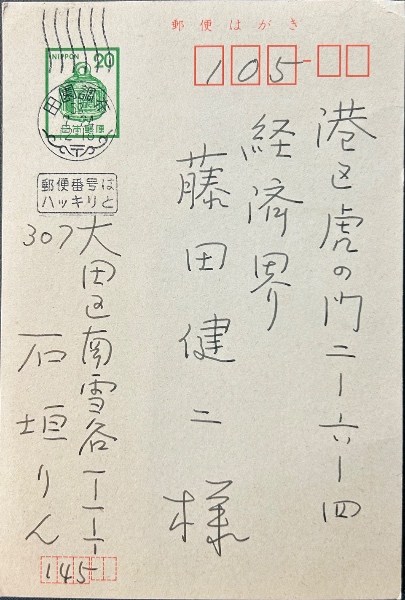 郵便はがき
105
NIPPON 20
日本郵便
田園調布
郵便番号は
ハッキリと
港区虎の門二ー六ー四
経済界
藤田健二様
大田区南雪谷一ー一ー一
307
石垣りん
145